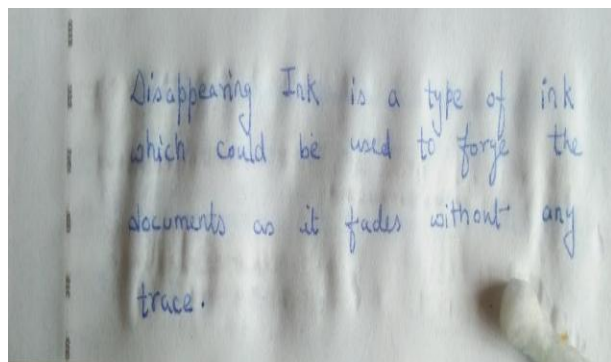 Disappearing Ink is a type of ink
which could be used to forge the
documents as it fades without any
trace.